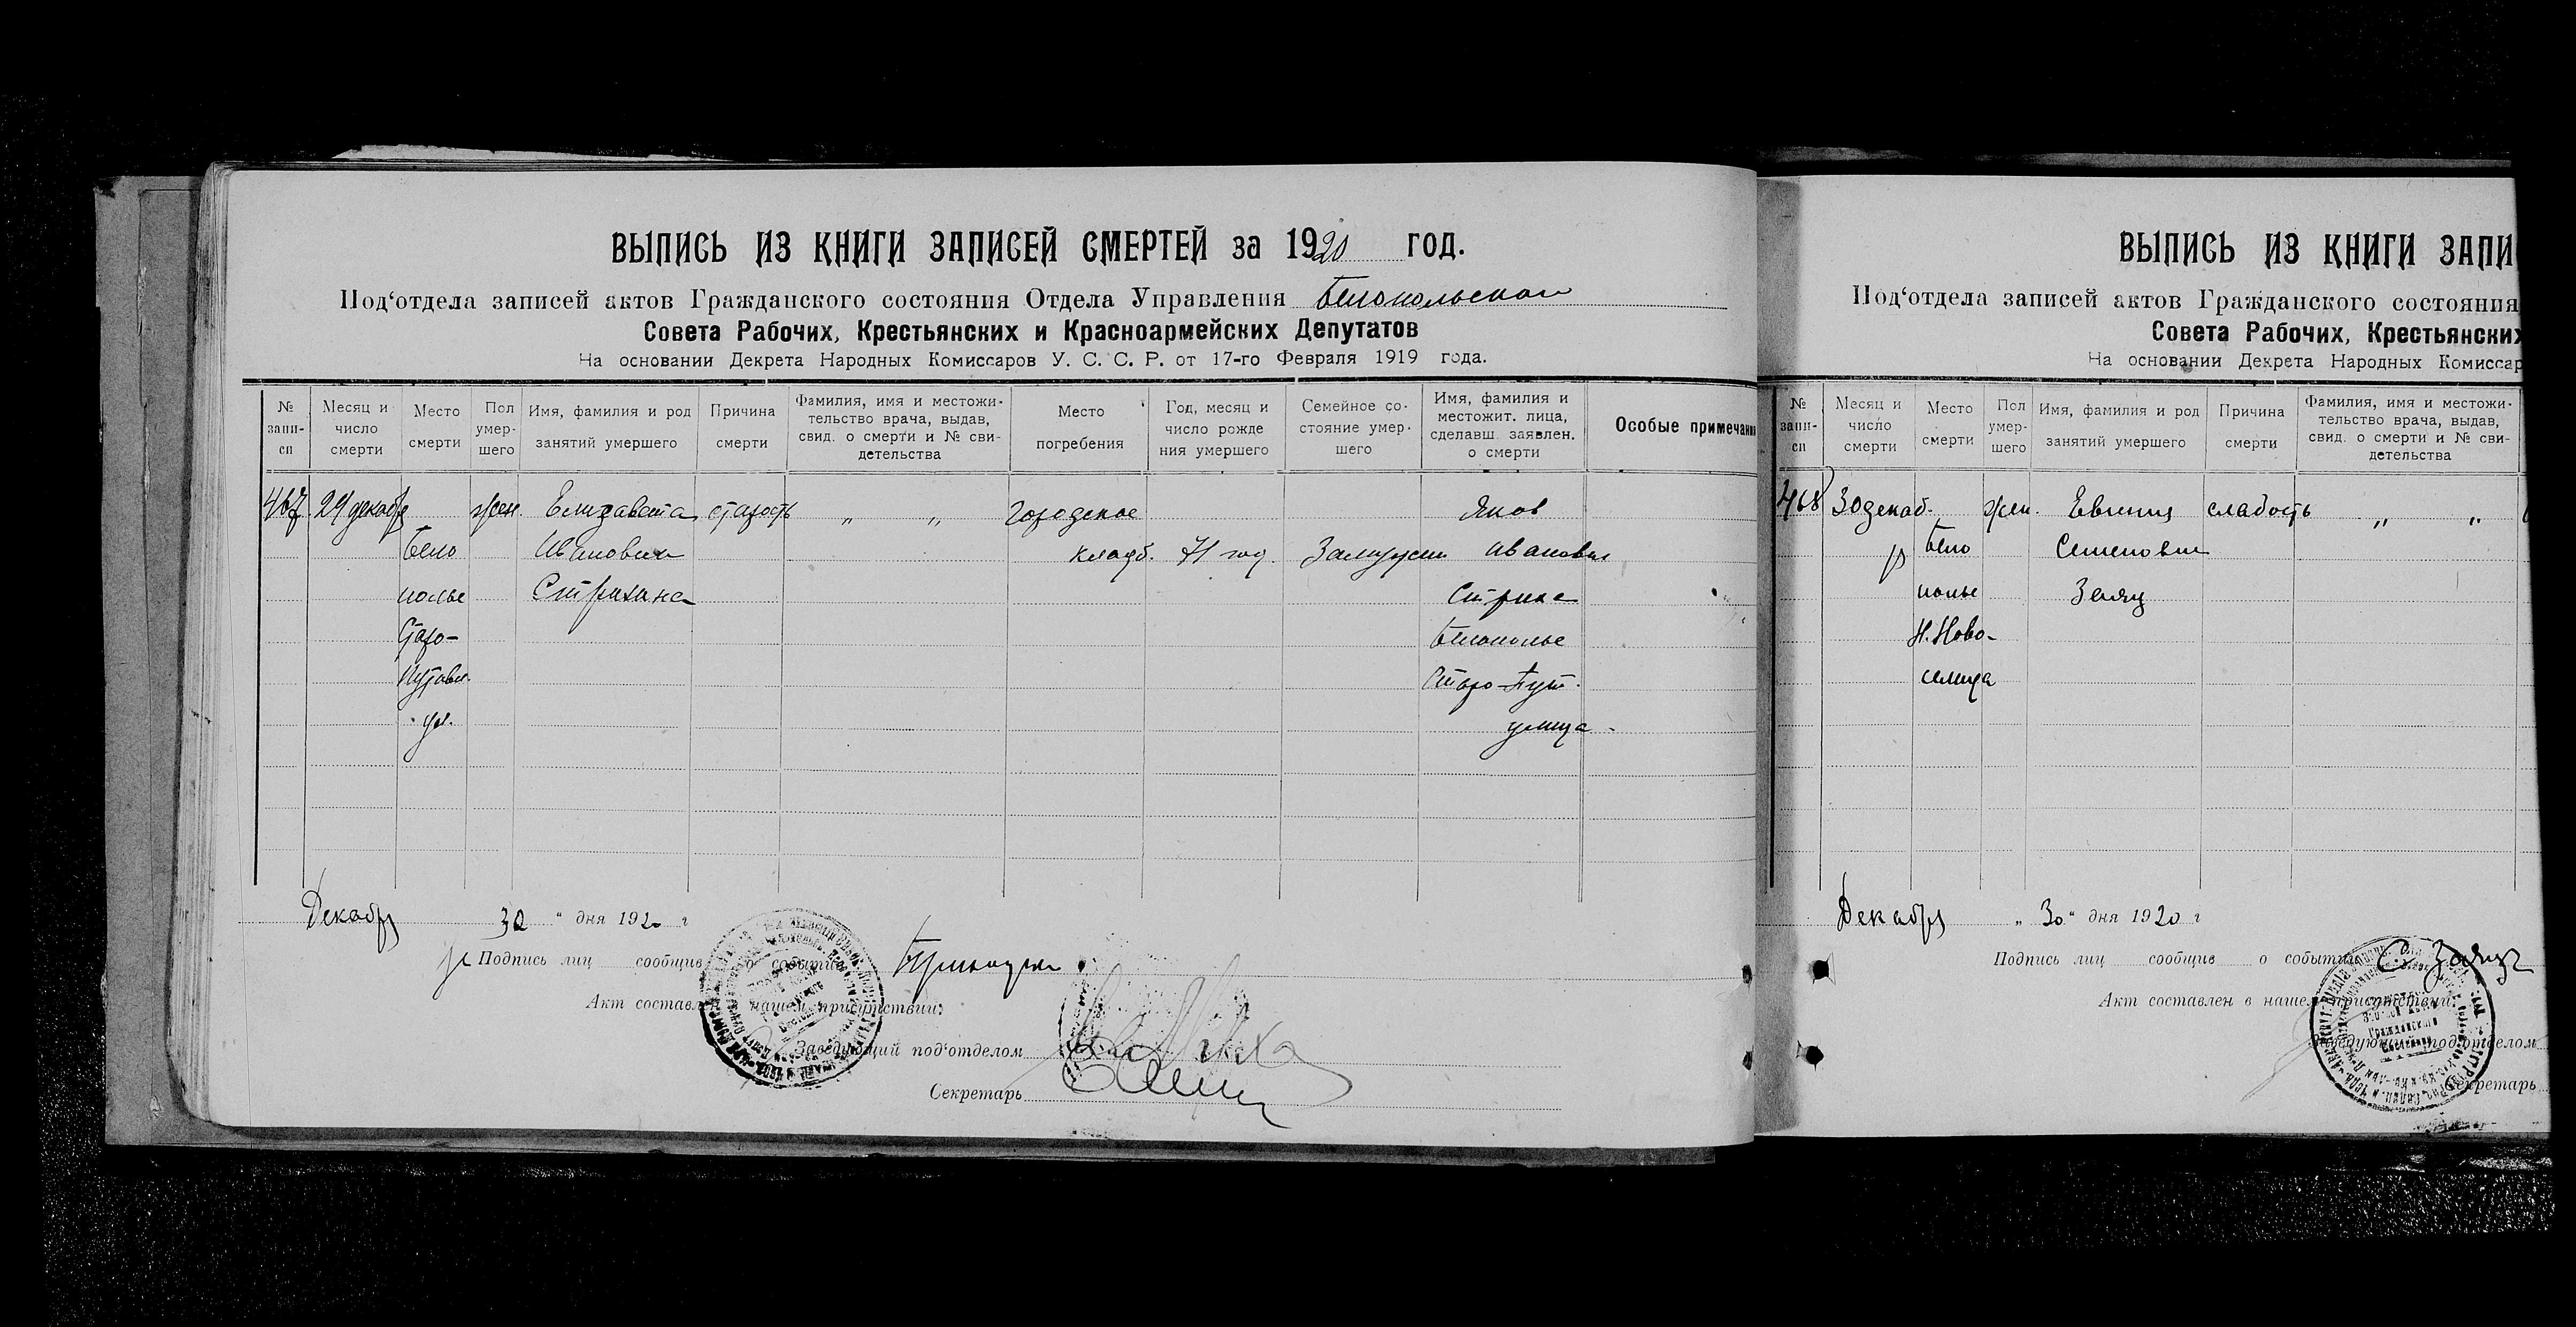 ВЫПИСЬ ИЗ КНИГИ ЗАПИСЕЙ СМЕРТЕЙ за 1920 год.
Под‘отдела записей актов Гражданского состояния Отдела Управления Белопольского
Совета Рабочих, Крестьянских и Красноармейских Депутатов
На основании Декрета Народных Комиссаров У. С. С. Р. от 17-го Февраля 1919 года.
№ запи- си
Месяц и число смерти
Место смерти
Пол умер- шего
Имя, фамилия и род занятий умершего
Причина смерти
Фамилия, имя и местожи- тельство врача, выдав, свид. о смерти и № сви- детельства
Место погребения
Год, месяц и число рожде ния умершего
Семейное со- стояние умер- шего
Имя, фамилия и местожит. лица, сделавш. заявлен. о смерти
Особые примечани
467 29 декабр жен. Елизавета старость „ „ городское Яков
Бело Ивановна кладб. 71 год. Замужем Иванович
полье Стрижака
Старо- Белополье
Путивл. Старо-Пут.
ул. улица
Декабря 30 “ дня 1920 г
Подпись лиц сообщив о событии
Акт составлен в нашем присутствии:
Заведующий под‘отделом
Секретарь
ВЫПИСЬ ИЗ КНИГИ ЗАПИ
Под‘отдела записей актов Гражданского состояния
Совета Рабочих, Крестьянских
На основании Декрета Народных Комиссар
№ запи- си
Месяц и число смерти
Место смерти
Пол умер- шего
Имя, фамилия и род занятий умершего
Причина смерти
Фамилия, имя и местожи- тельство врача, выдав, свид. о смерти и № сви- детельства
468 30 декаб. жен. Евгения слабость „ „
р Бело Семеновна
полье Заяц
Н. Ново-
селица
Декабря „ 30 “ дня 1920 г
Подпись лиц сообщив о событии С. Заяц
Акт составлен в нашем присутствии:
Заведующий под‘отделом
Секретарь